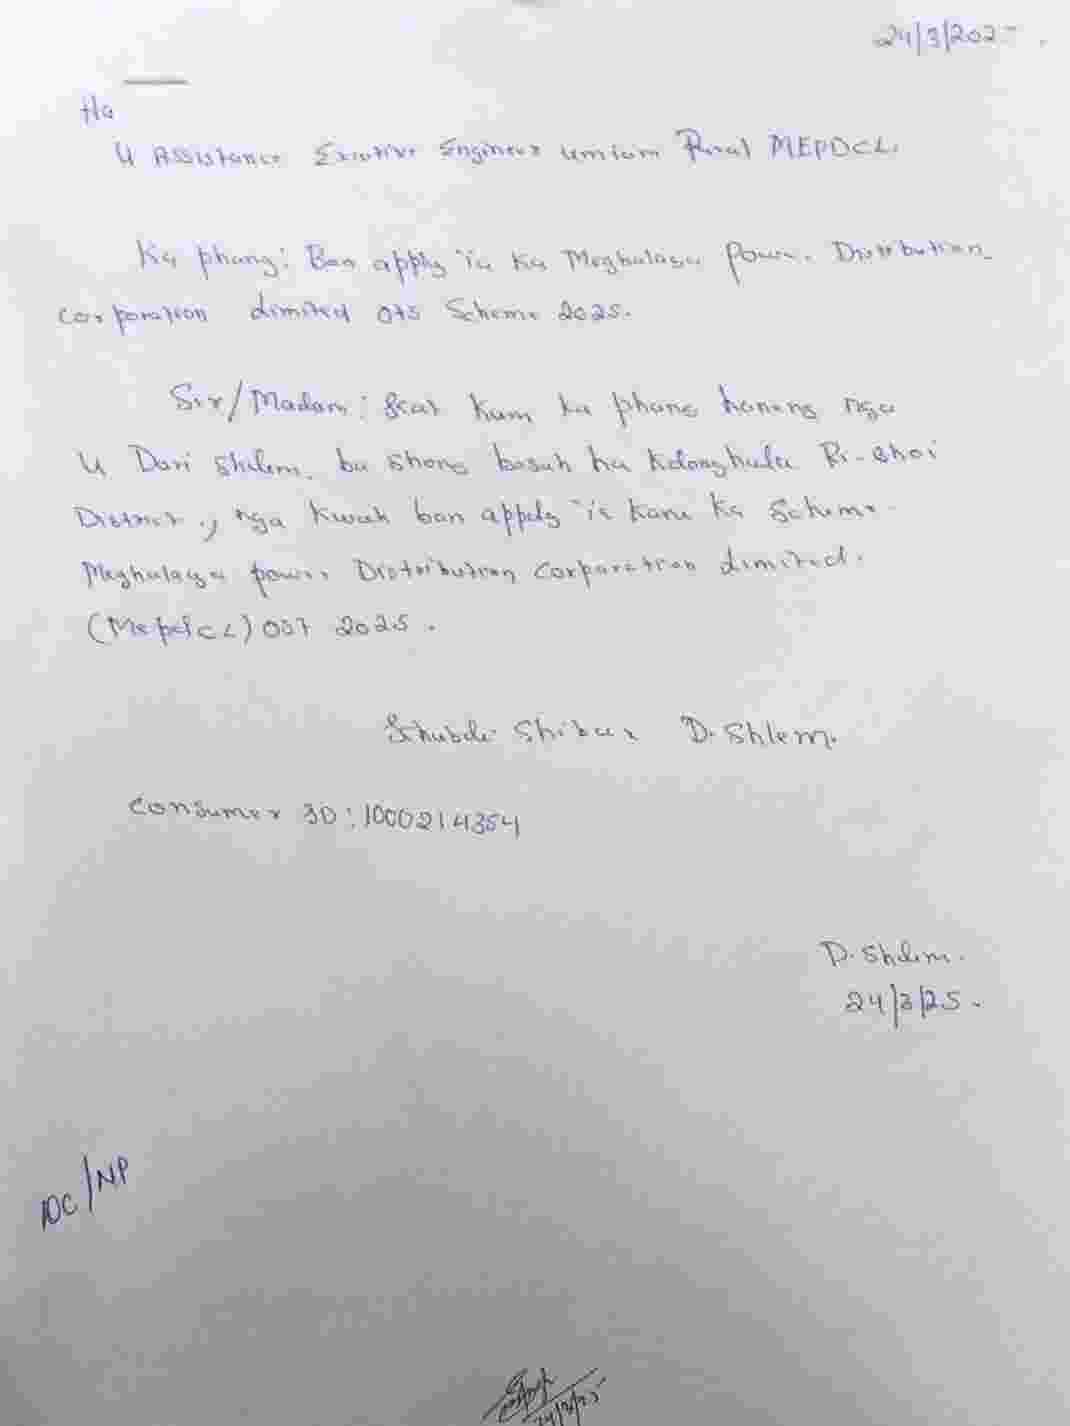 24/3/2025.
Ha
U Assistance Exicutive Engineer umiam Rural MEPDCL.
Ka phang: Ban apply ïa ka Meghalaya Power Distribution
corporation Limited OTS Scheme 2025.
Sir/Madam: kat kum ka phang haneng nga
U Dari Shlem, ba shong basah ha Ri-Bhoi
District, nga kwah ban apply ïa kane ka Scheme
Meghalaya power Distribution corporation Limited.
(MepdCL) OST 2025.
D. Shlem.
Consumer ID: 1000214354
D. Shlem.
24/3/25.
DC/NP
24/3/25